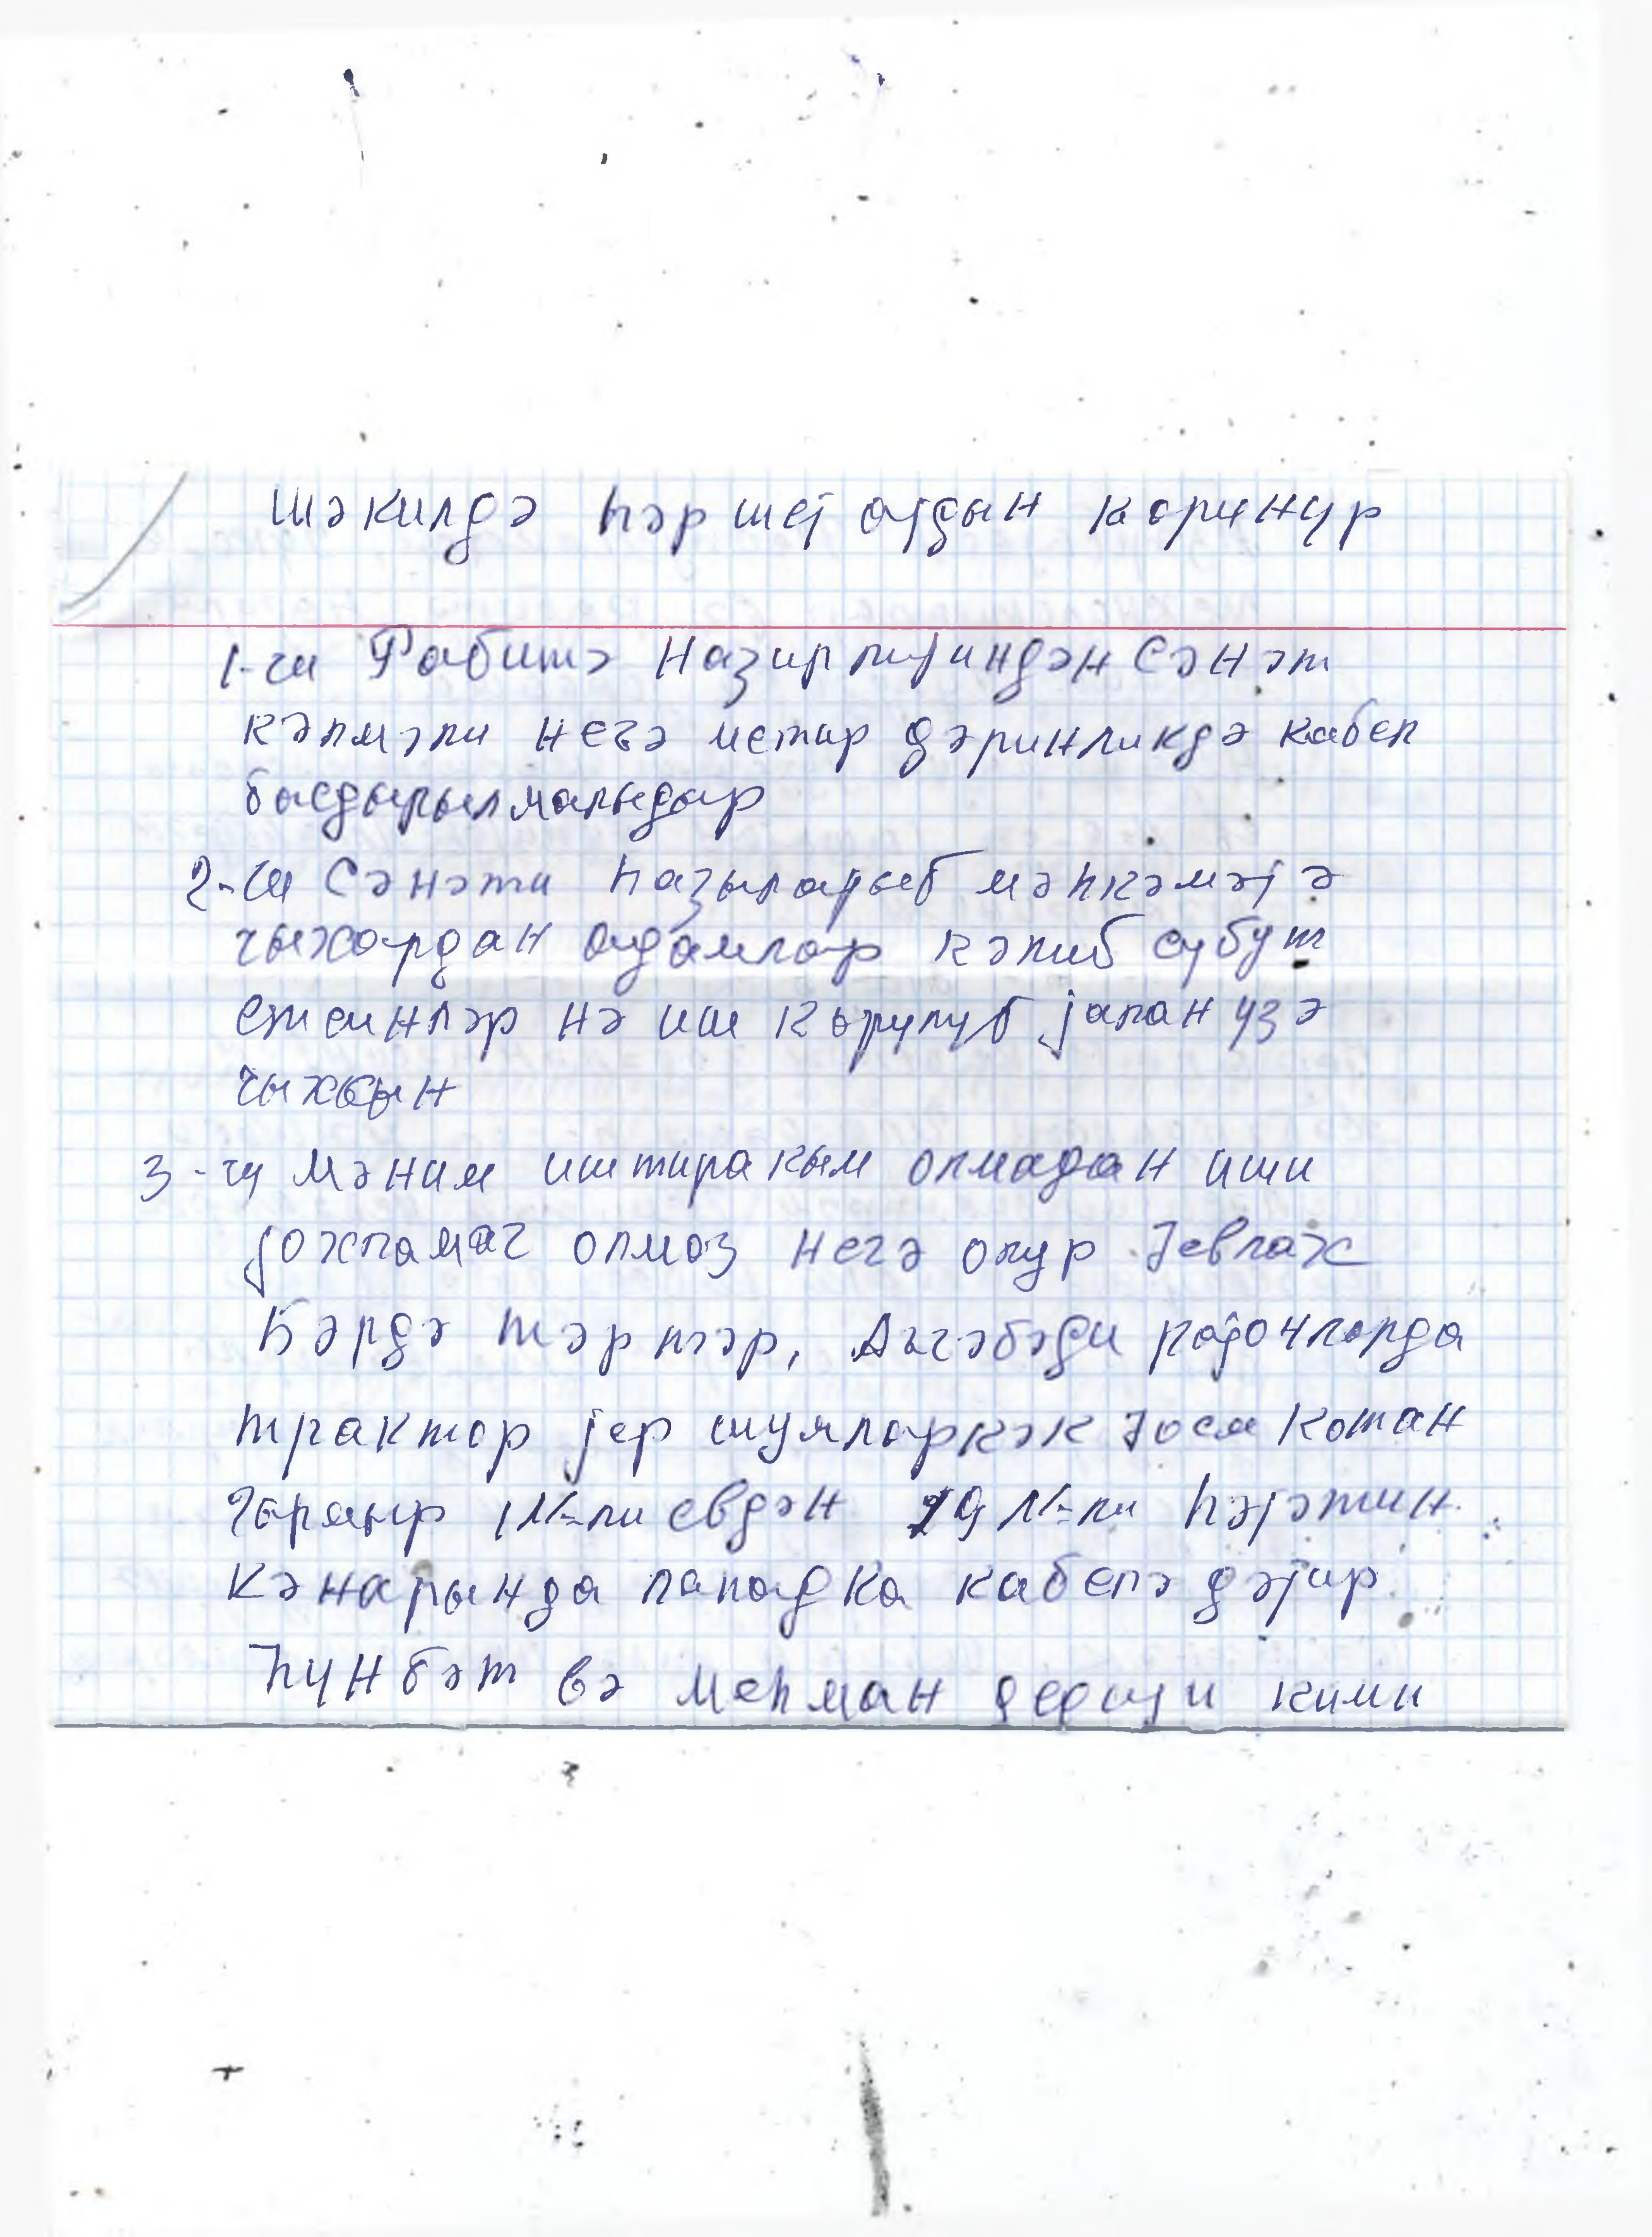 Шәкилдә һәр шеј ајдын көрүнүр
1-чи Рабитә Назирлијиндән Сәнәт
кәлмәли нечә метир дәринликдә кабел
басдырылмалыдыр
2-чи Сәнәти һазырлајыб мәһкәмәјә
чыхардан адамлар кәлиб субут
етсинләр нә иш көрүлүб јалан үзә
чыхсын
3-чү Мәним иштиракым олмадан иши
јохламаг олмаз нечә олур Јевлах
Бәрдә Тәртәр, Ағчәбәди рајонларда
трактор јер шумларкәк котан
гырмыр 1 №-ли евдән 29 №-ли һәјәтин
кәнарында лападка кабелә дәјир
Һүнбәт вә Меһман демиш кими